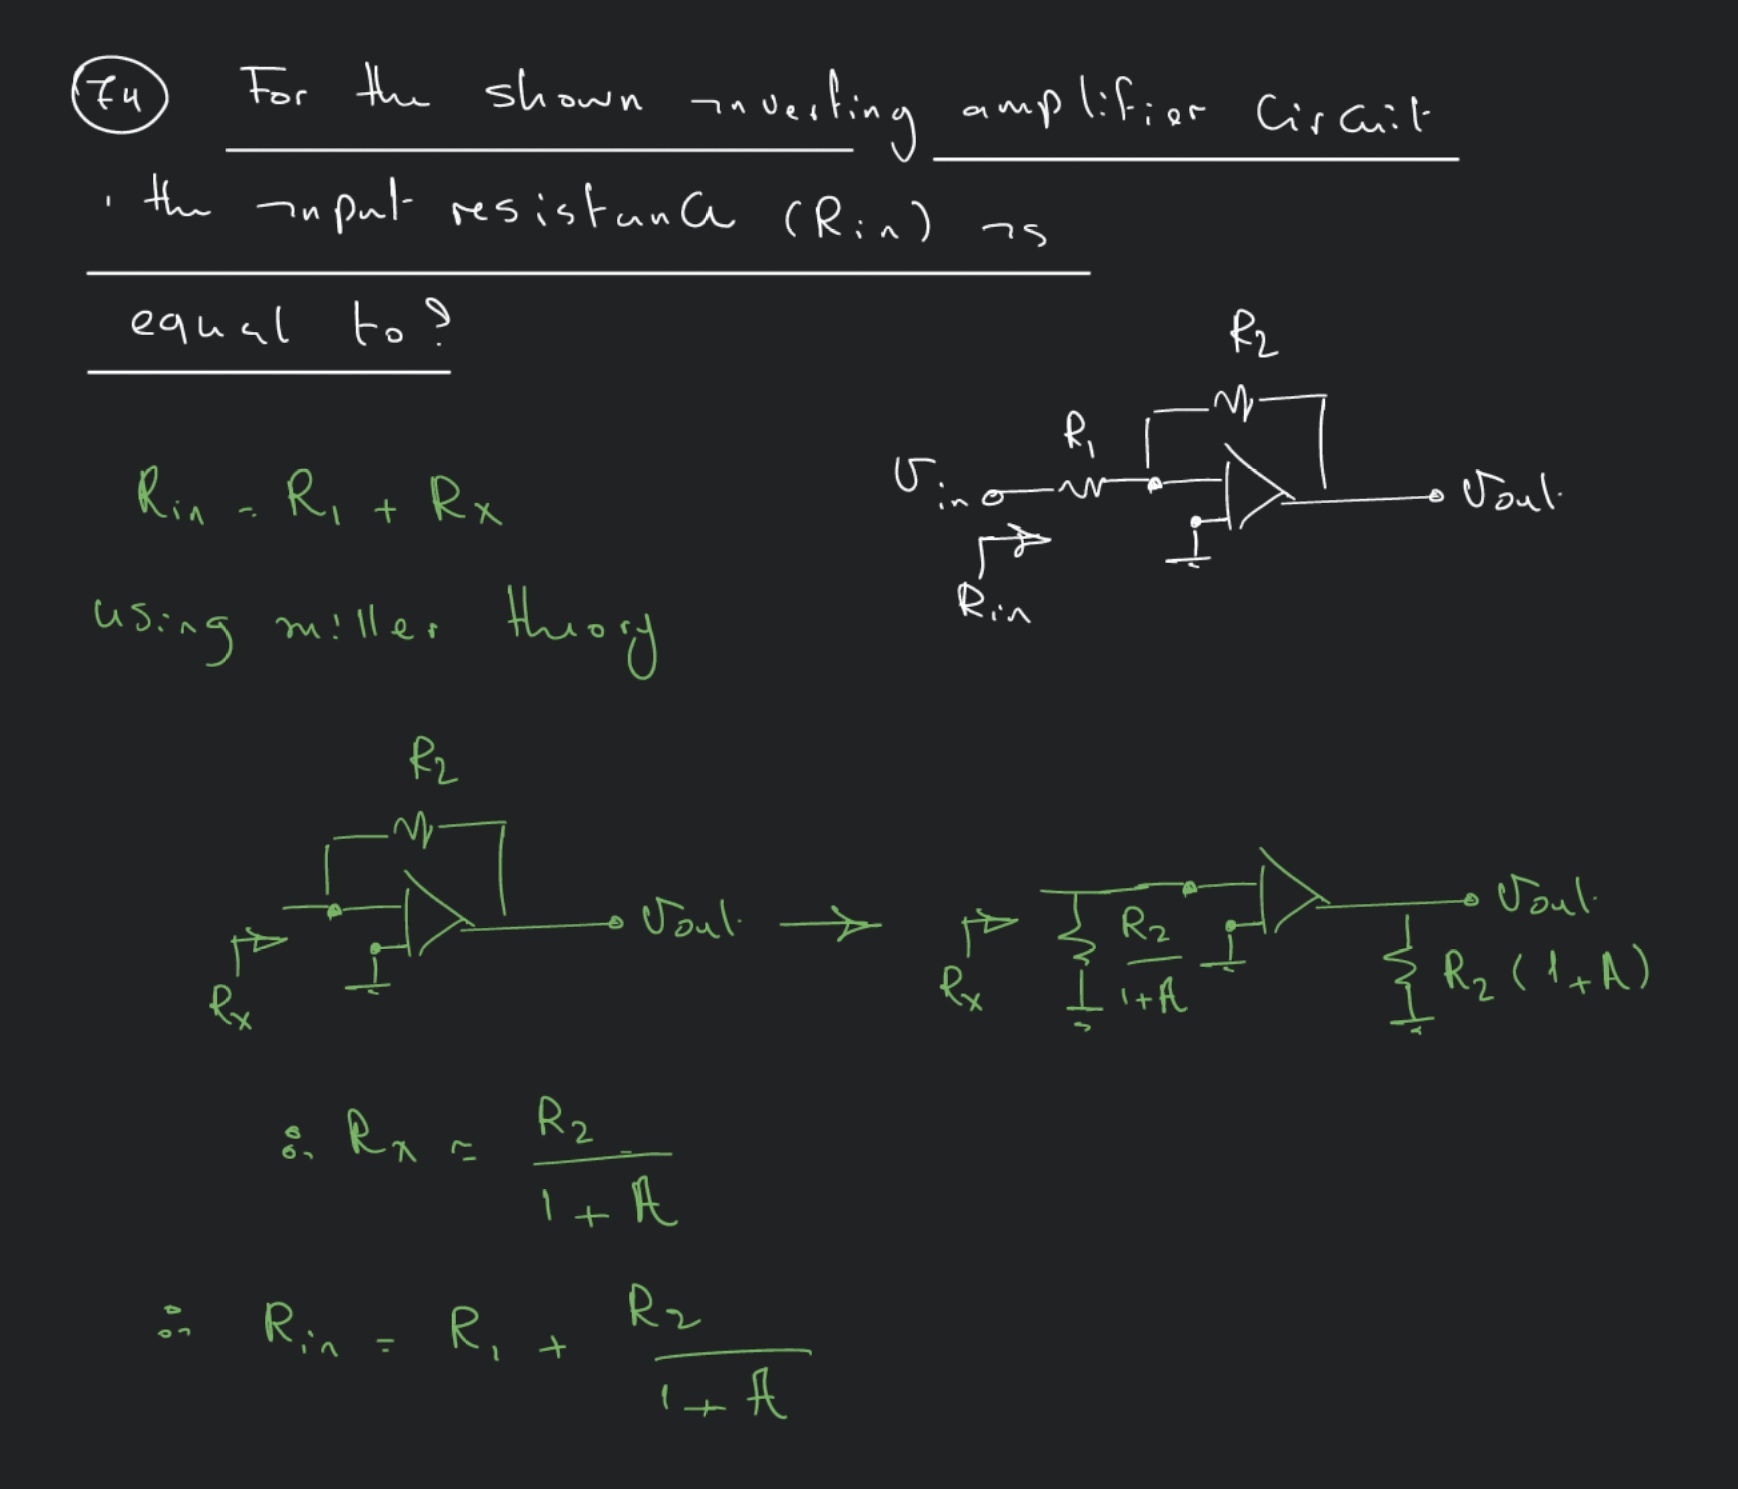 74 For the shown inverting amplifier circuit
, the input resistance (Rin) is
equal to?
R2
R1
Vin
Vout
Rin
Rin = R1 + Rx
using miller theory
R2
Vout
Rx
Vout
Rx
R2 / 1+A
R2 (1+A)
∴ Rx = R2 / 1 + A
∴ Rin = R1 + R2 / 1 + A